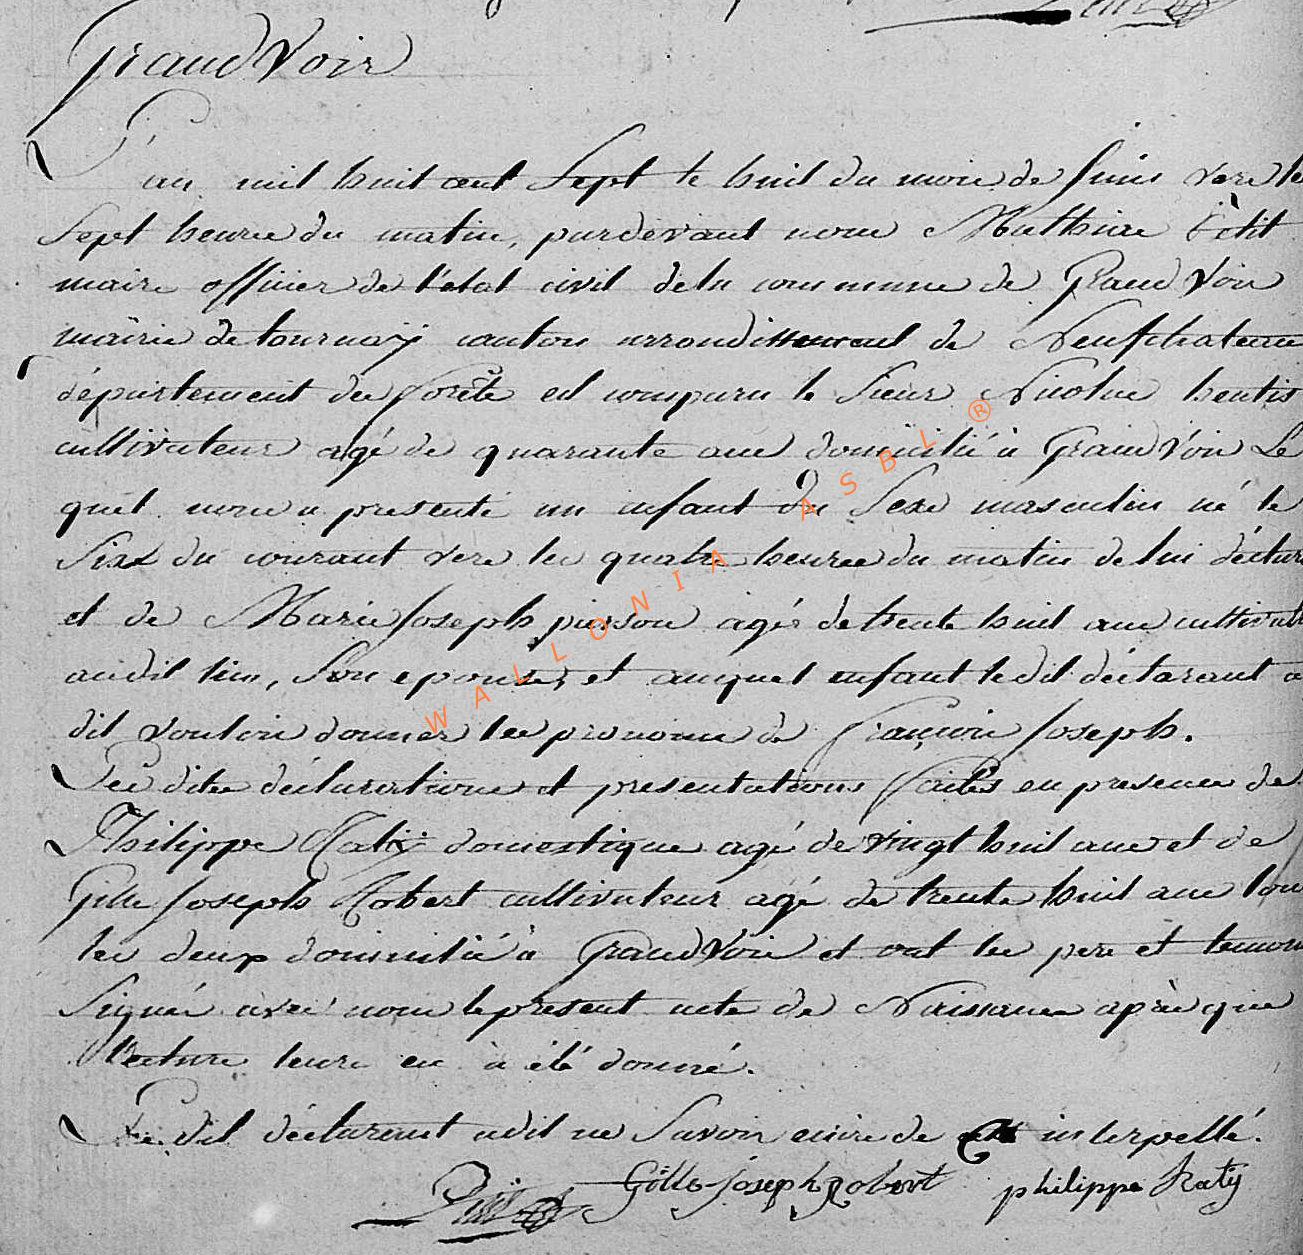 Grand Voir
L'an mil huit cent sept le huit du mois de juin vers les
sept heures du matin, pardevant nous Matthias Petit
maire officier de l'état civil de la commune de Grand Voir
mairie de tournaÿ canton arrondissement de Neufchateau
département des forêts est comparu le Sieur Nicolas hentis
cultivateur agé de quarante ans domicilié à Grand Voir Le
quel nous a presenté un enfant du Sexe masculin né le
Six du courant vers les quatre heures du matin de lui déclara
et de Marie Joseph pierson agée de trente huit ans cultivat
audit lieu, Son epouse, et auquel enfant le dit déclarant a
dit vouloir donner les prenoms de François Joseph.
Les dites déclarations et presentations faites en presence de
Philippe Katÿ domestique agé de vingt huit ans et de
Gille Joseph Robert cultivateur agé de trente huit ans tou
les deux domicilié à Grand Voir et ont les pere et temoin
Signés avec nous le present acte de Naissance après que
l'ecture leurs en à été donné.
Le dit déclarent a dit ne Savoir ecrire de interpellé.
Petit Gille-joseph Robert philippe Katÿ
WALLONIA ASBL ®